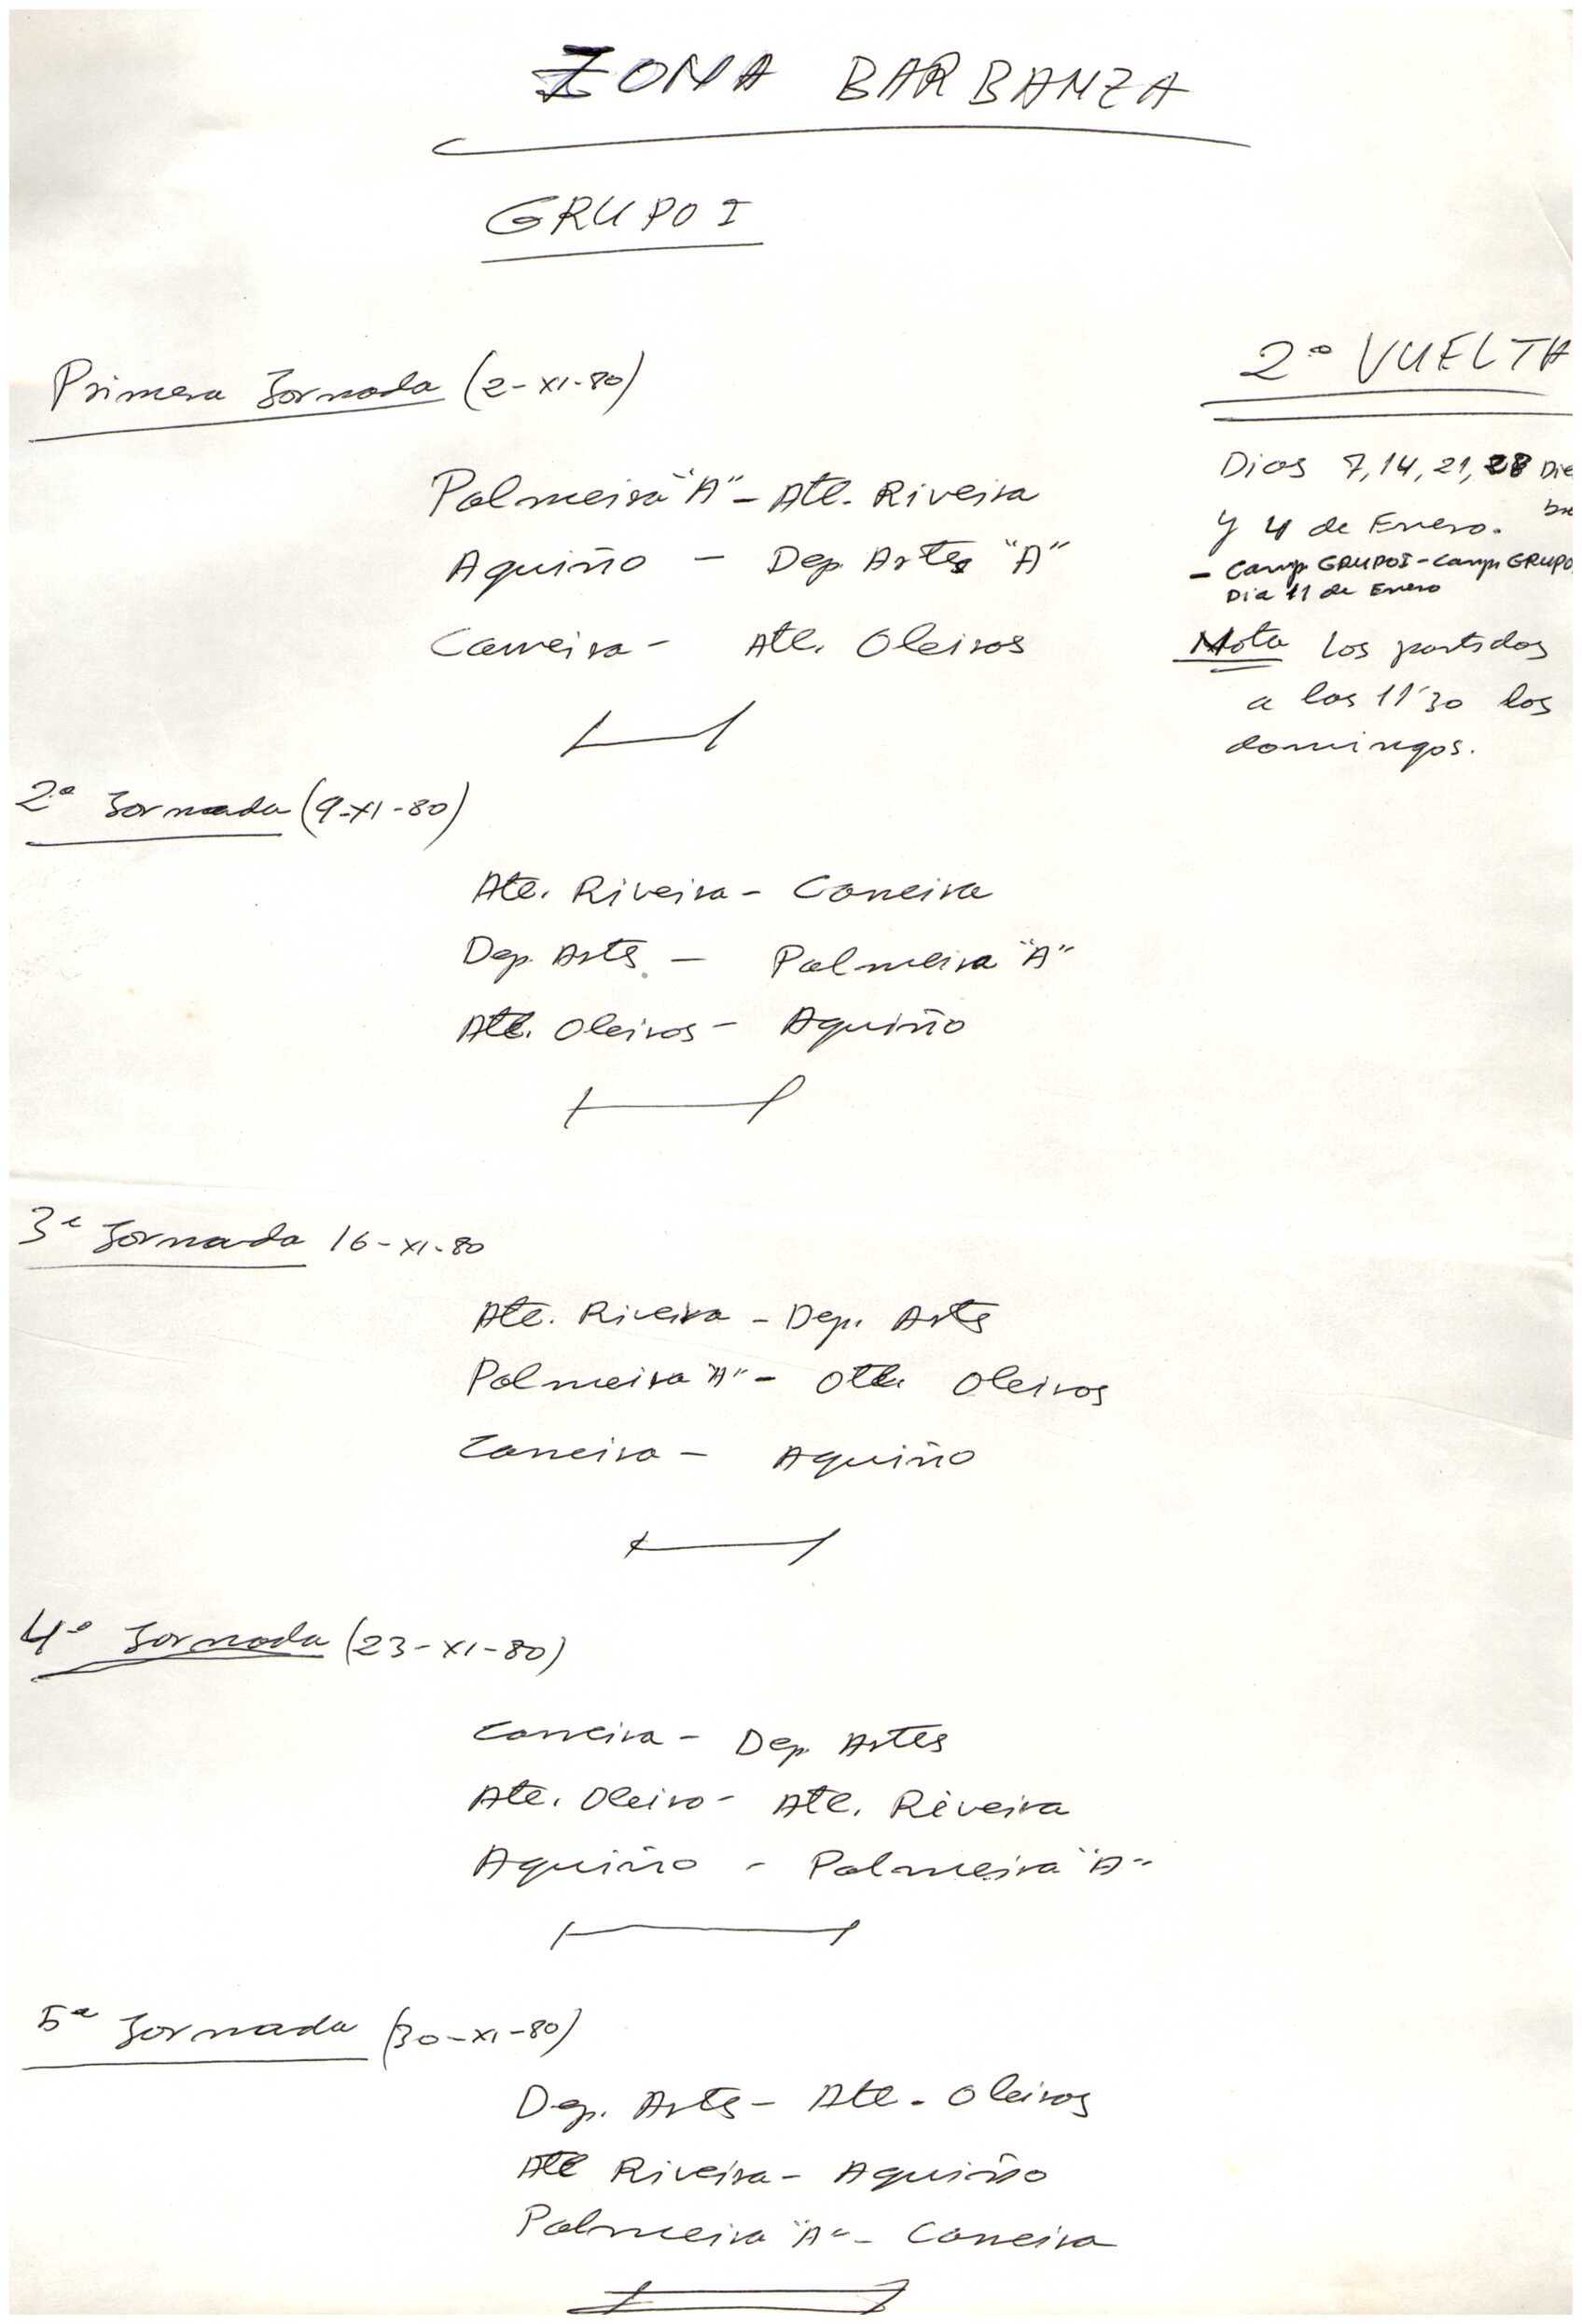 ZONA BARBANZA
GRUPO I
Primera Jornada (2-XI-80)
Palmeira "A" - Atl. Riveira
Aguiño - Dep Artes "A"
Carreira - Atl. Oleiros
2ª Jornada (9-XI-80)
Atl. Riveira - Carreira
Dep. Arts - Palmeira "A"
Atl. Oleiros - Aguiño
3ª Jornada 16-XI-80
Atl. Riveira - Dep. Arts
Palmeira "A" - Otl. Oleiros
Carreira - Aguiño
4ª Jornada (23-XI-80)
Carreira - Dep. Artes
Atl. Oleiro - Atl. Riveira
Aguiño - Palmeira "A"
5ª Jornada (30-XI-80)
Dep. Arts - Atl. Oleiros
Atl Riveira - Aguiño
Palmeira "A" - Carreira
2ª VUELTA
Dias 7, 14, 21, 28 Die
y 4 de Enero.
- Camp. GRUPO I - Camp. GRUPO
Dia 11 de Enero
Nota Los partidos
a las 11'30 los
domingos.